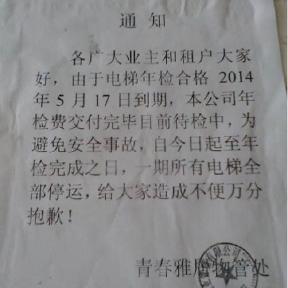 通知
各广大业主和租户大家
好，由于电梯年检合格 2014
年 5 月 17 日到期，本公司年
检费交付完毕目前待检中，为
避免安全事故，自今日起至年
检完成之日，一期所有电梯全
部停运，给大家造成不便万分
抱歉！
青春雅居物管处